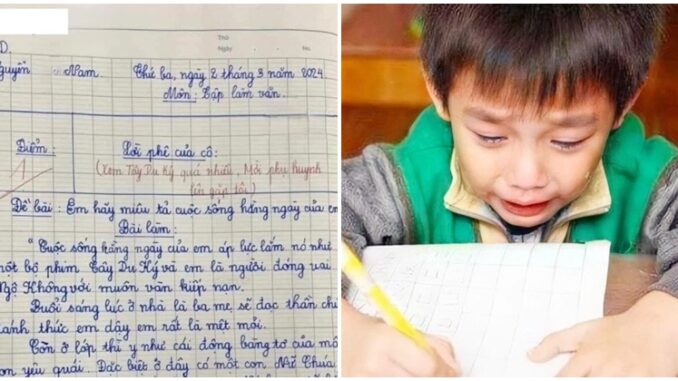 Thứ
Ngày No
D.
guyễn Nam. Thứ ba, ngày 2 tháng 3 năm 2024
Môn: Tập làm văn.
Điểm: Lời phê của cô:
1 (Xem Tây Du Ký quá nhiều, Mời phụ huynh
lên gặp tôi)
Đề bài: Em hãy miêu tả cuộc sống hằng ngày của em
Bài làm:
"Cuộc sống hằng ngày của em áp lực lắm nó như
một bộ phim Tây Du Ký và em là người đóng vai
Ngộ Không với muôn vàn kiếp nạn.
Buổi sáng lúc ở nhà là ba mẹ sẽ đọc thần chú
đánh thức em dậy em rất là mệt mỏi.
Còn ở lớp thì y như cái động bàng tơ của mấy
con yêu quái. Đặc biệt ở đây có một con Nữ Chúa